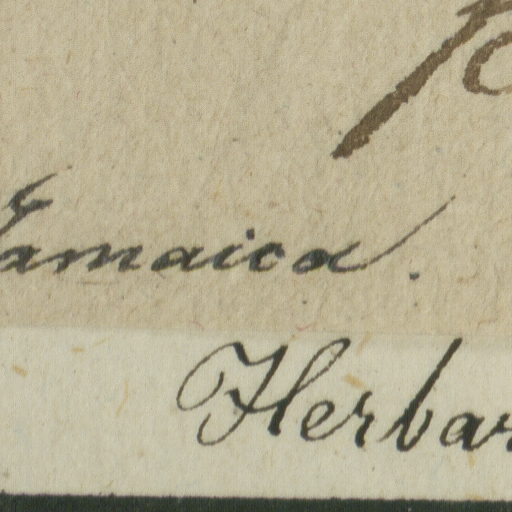 Jamaica.
Herbar